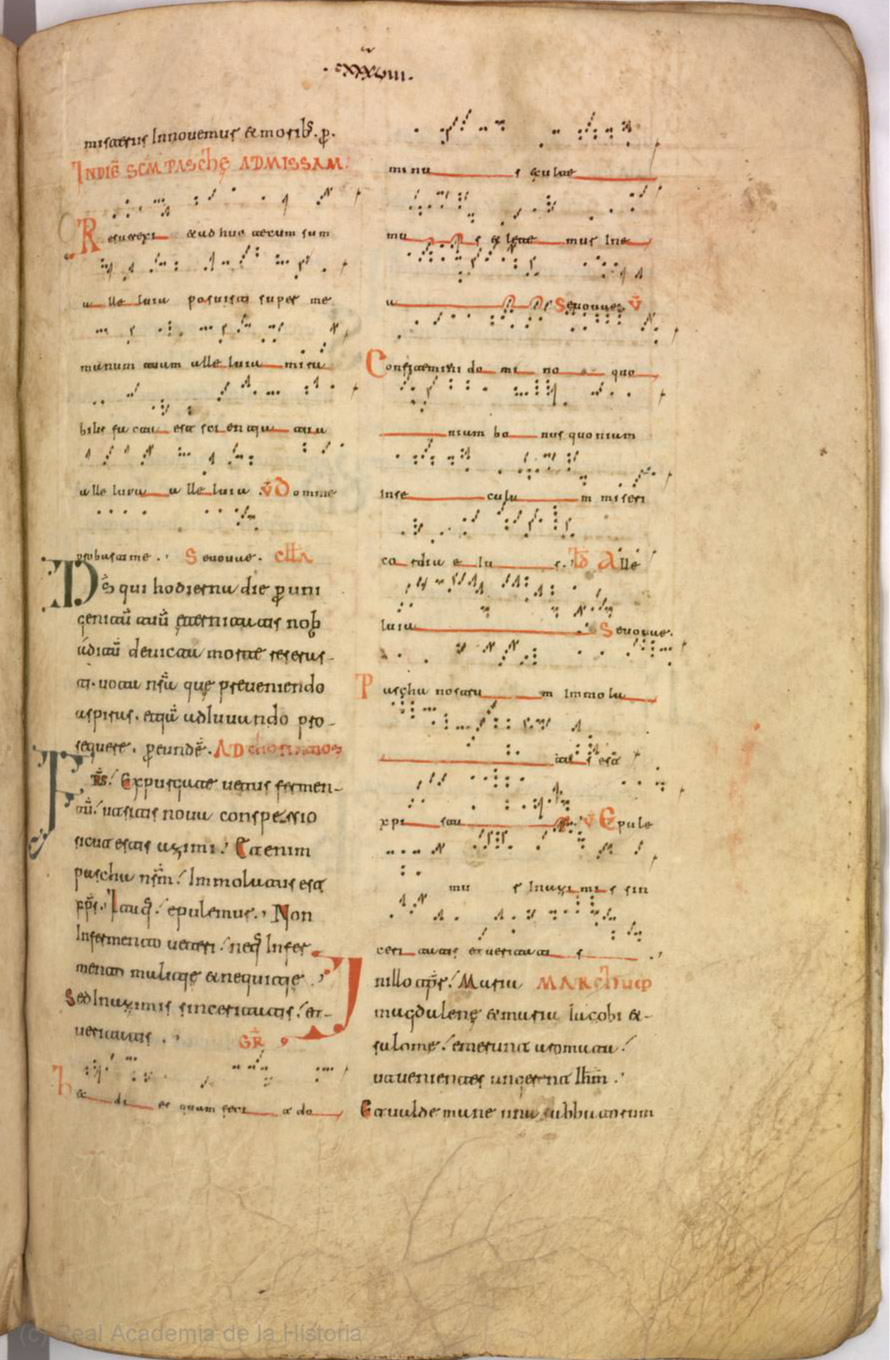 · cxxxviiii ·
misteriis Innovemur & morib;. p̱.
IN DIE SCM PASChę AD MISSAM.
Resurrexi & adhuc tecum sum
alleluia posuisti super me
manum tuam alleluia mira
bilis facta est scientia tua
alleluia alleluia v̄ Domine
probasti me. Sevovae. cllā
D̄s qui hodierna die p̱ uni
genitū tuū ęternitatis nob̄
aditū devicta morte reseras-
ti. vota nr̄a quę preveniendo
aspiras. etiā adiuvando pro-
sequere. p̱ eundē. AD chorintios
FR̄S. Expurgate vetus fermen-
tū. ut sitis nova conspersio
sicut estis azimi. Etenim
pascha nr̄m. Immolatus est
xp̄s. Itaq; epulemur. Non
In fermento veteri. neq; In fer-
mento malitię & nequitię.
Sed In azimis sinceritatis. et-
veritatis. GR̄
Hęc dies quam fecit do
minus exulte
mus & lete mur In e
a Sevovae v̄
Confitemini domino quo
niam bonus quoniam
In se cula m miseri
cordia e ius. Alle
luia Sevovae.
Pascha nostrum Immola
tus est
xpi stus v̄ Epule
mur In azimis sin
ceritatis et veritatis
In illo tp̄r. Maria MARChum
magdalenę & maria Iacobi &-
salome. emerunt aromata.
ut venientes ungerent Ihm̄.
Et valde mane una sabbatorum
(c) Real Academia de la Historia